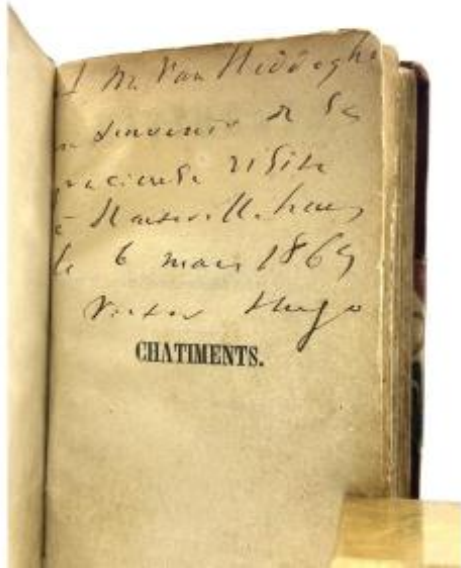 M. Van
souvenir de sa
gracieuse visite
à Hauteville house
le 6 mars 1869
Victor Hugo
CHATIMENTS.